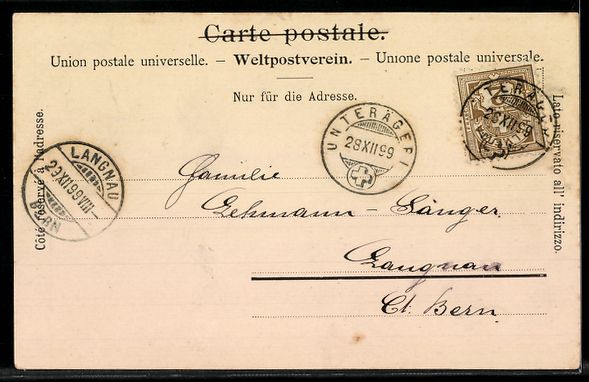 Carte postale.
Union postale universelle. – Weltpostverein. – Unione postale universale.
Nur für die Adresse.
Côté réservé à l'adresse.
Lato riservato all' indirizzo.
UNTERÄGERI
28XII99
UNTERÄGERI
28XII99
LANGNAU
29XII99VIII
BERN
Familie
Lehmann – Sänger
Langnau
Ct. Bern.